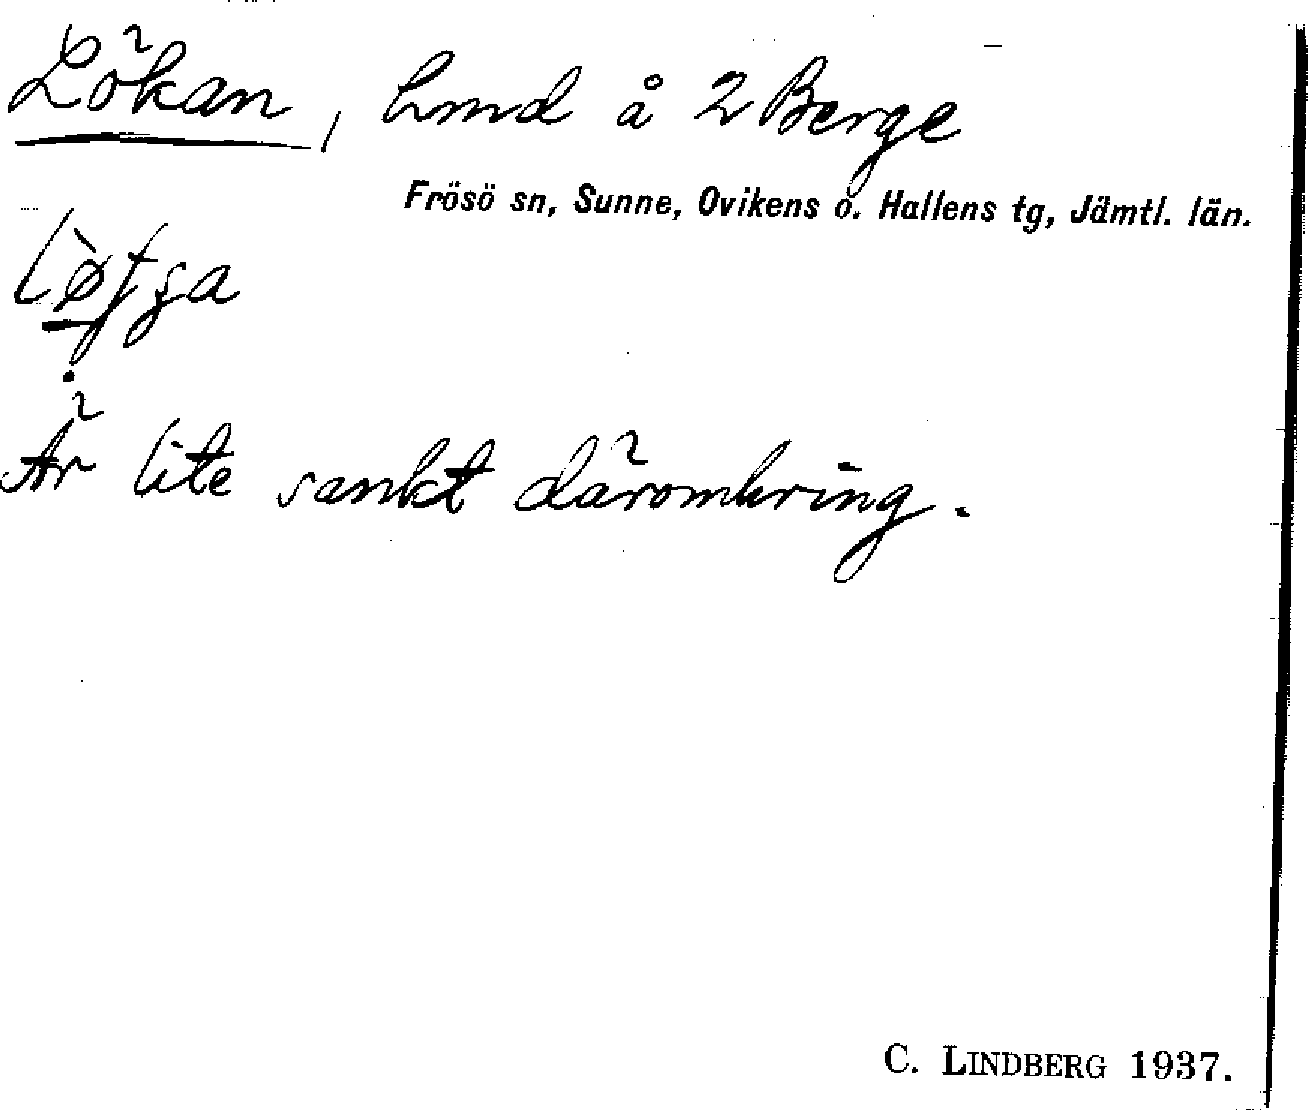 Lökan, Lmd å 2 Berge
Frösö sn, Sunne, Ovikens o. Hallens tg, Jämtl. län.
Är lite sankt däromkring.
C. LINDBERG 1937.